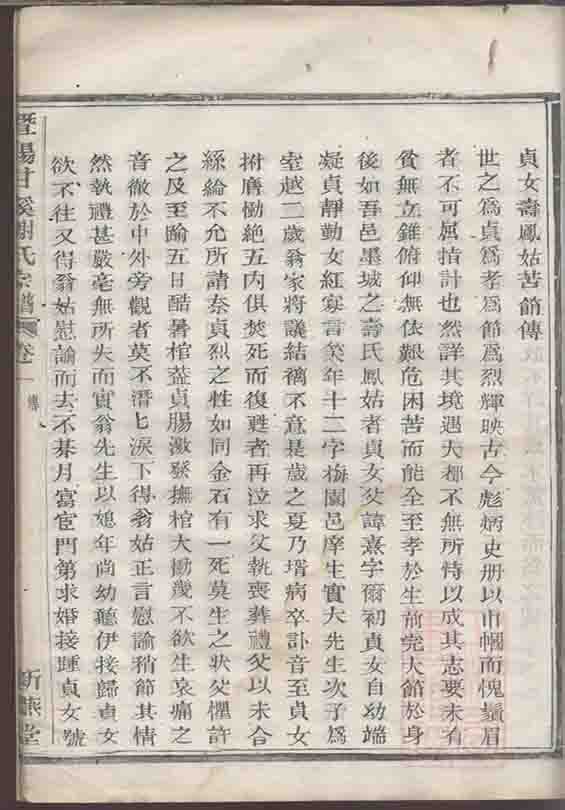 貞女壽鳳姑苦節傳
世之爲貞爲孝爲節爲烈輝映古今彪炳史册以巾幗而愧鬚眉
者不可屈指計也然詳其境遇大都不無所恃以成其志要未有
貧無立錐俯仰無依艱危困苦而能全至孝於生前完大節於身
後如吾邑墨城之壽氏鳳姑者貞女父諱熹字爾初貞女自幼端
凝貞靜勤女紅寡言笑年十二字梅園邑庠生實大先生次子爲
室越二歲翁家將議結褵不意是歲之夏乃壻病卒訃音至貞女
拊膺慟絶五内俱焚死而復甦者再泣求父執喪葬禮父以未合
絲綸不允所請奈貞烈之性如同金石有一死莫生之狀父懼許
之及至踰五日酷暑棺蓋貞腸激發撫棺大慟幾不欲生哀痛之
音徹於中外旁觀者莫不潛七淚下得翁姑正言慰諭稍節其情
然執禮甚嚴毫無所失而實翁先生以媳年尚幼聽伊接歸貞女
欲不往又得翁姑慰諭而去不朞月富宦門第求婚接踵貞女號
暨陽甘溪謝氏宗譜 卷一 傳